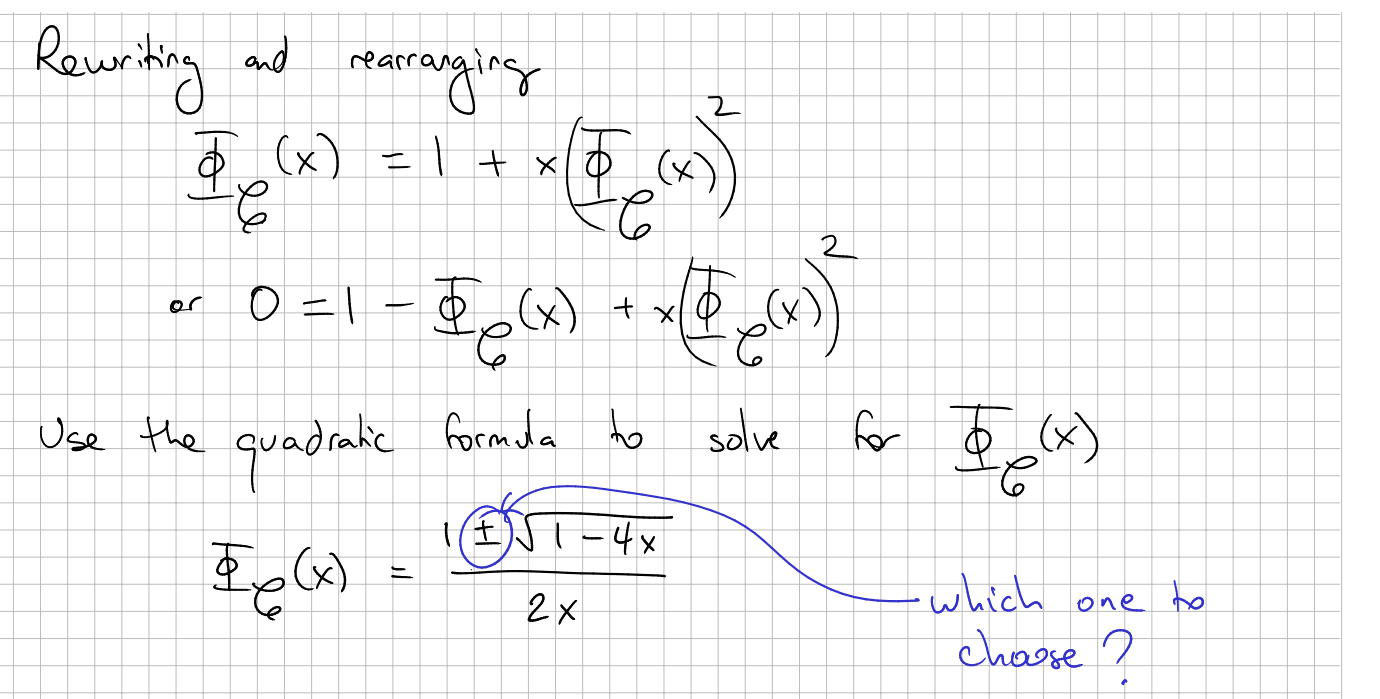 Rewriting and rearranging
Φ_𝒞(x) = 1 + x(Φ_𝒞(x))²
or 0 = 1 - Φ_𝒞(x) + x(Φ_𝒞(x))²
Use the quadratic formula to solve for Φ_𝒞(x)
Φ_𝒞(x) = (1 ± √(1 - 4x)) / 2x
which one to
choose?